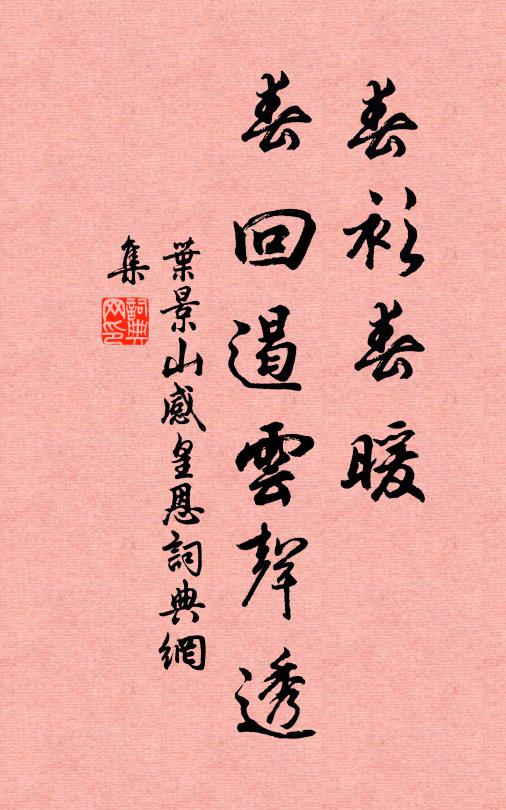 春衫春暖
春回遏雲聲透
葉景山感皇恩詞典網
集
詞典
网印